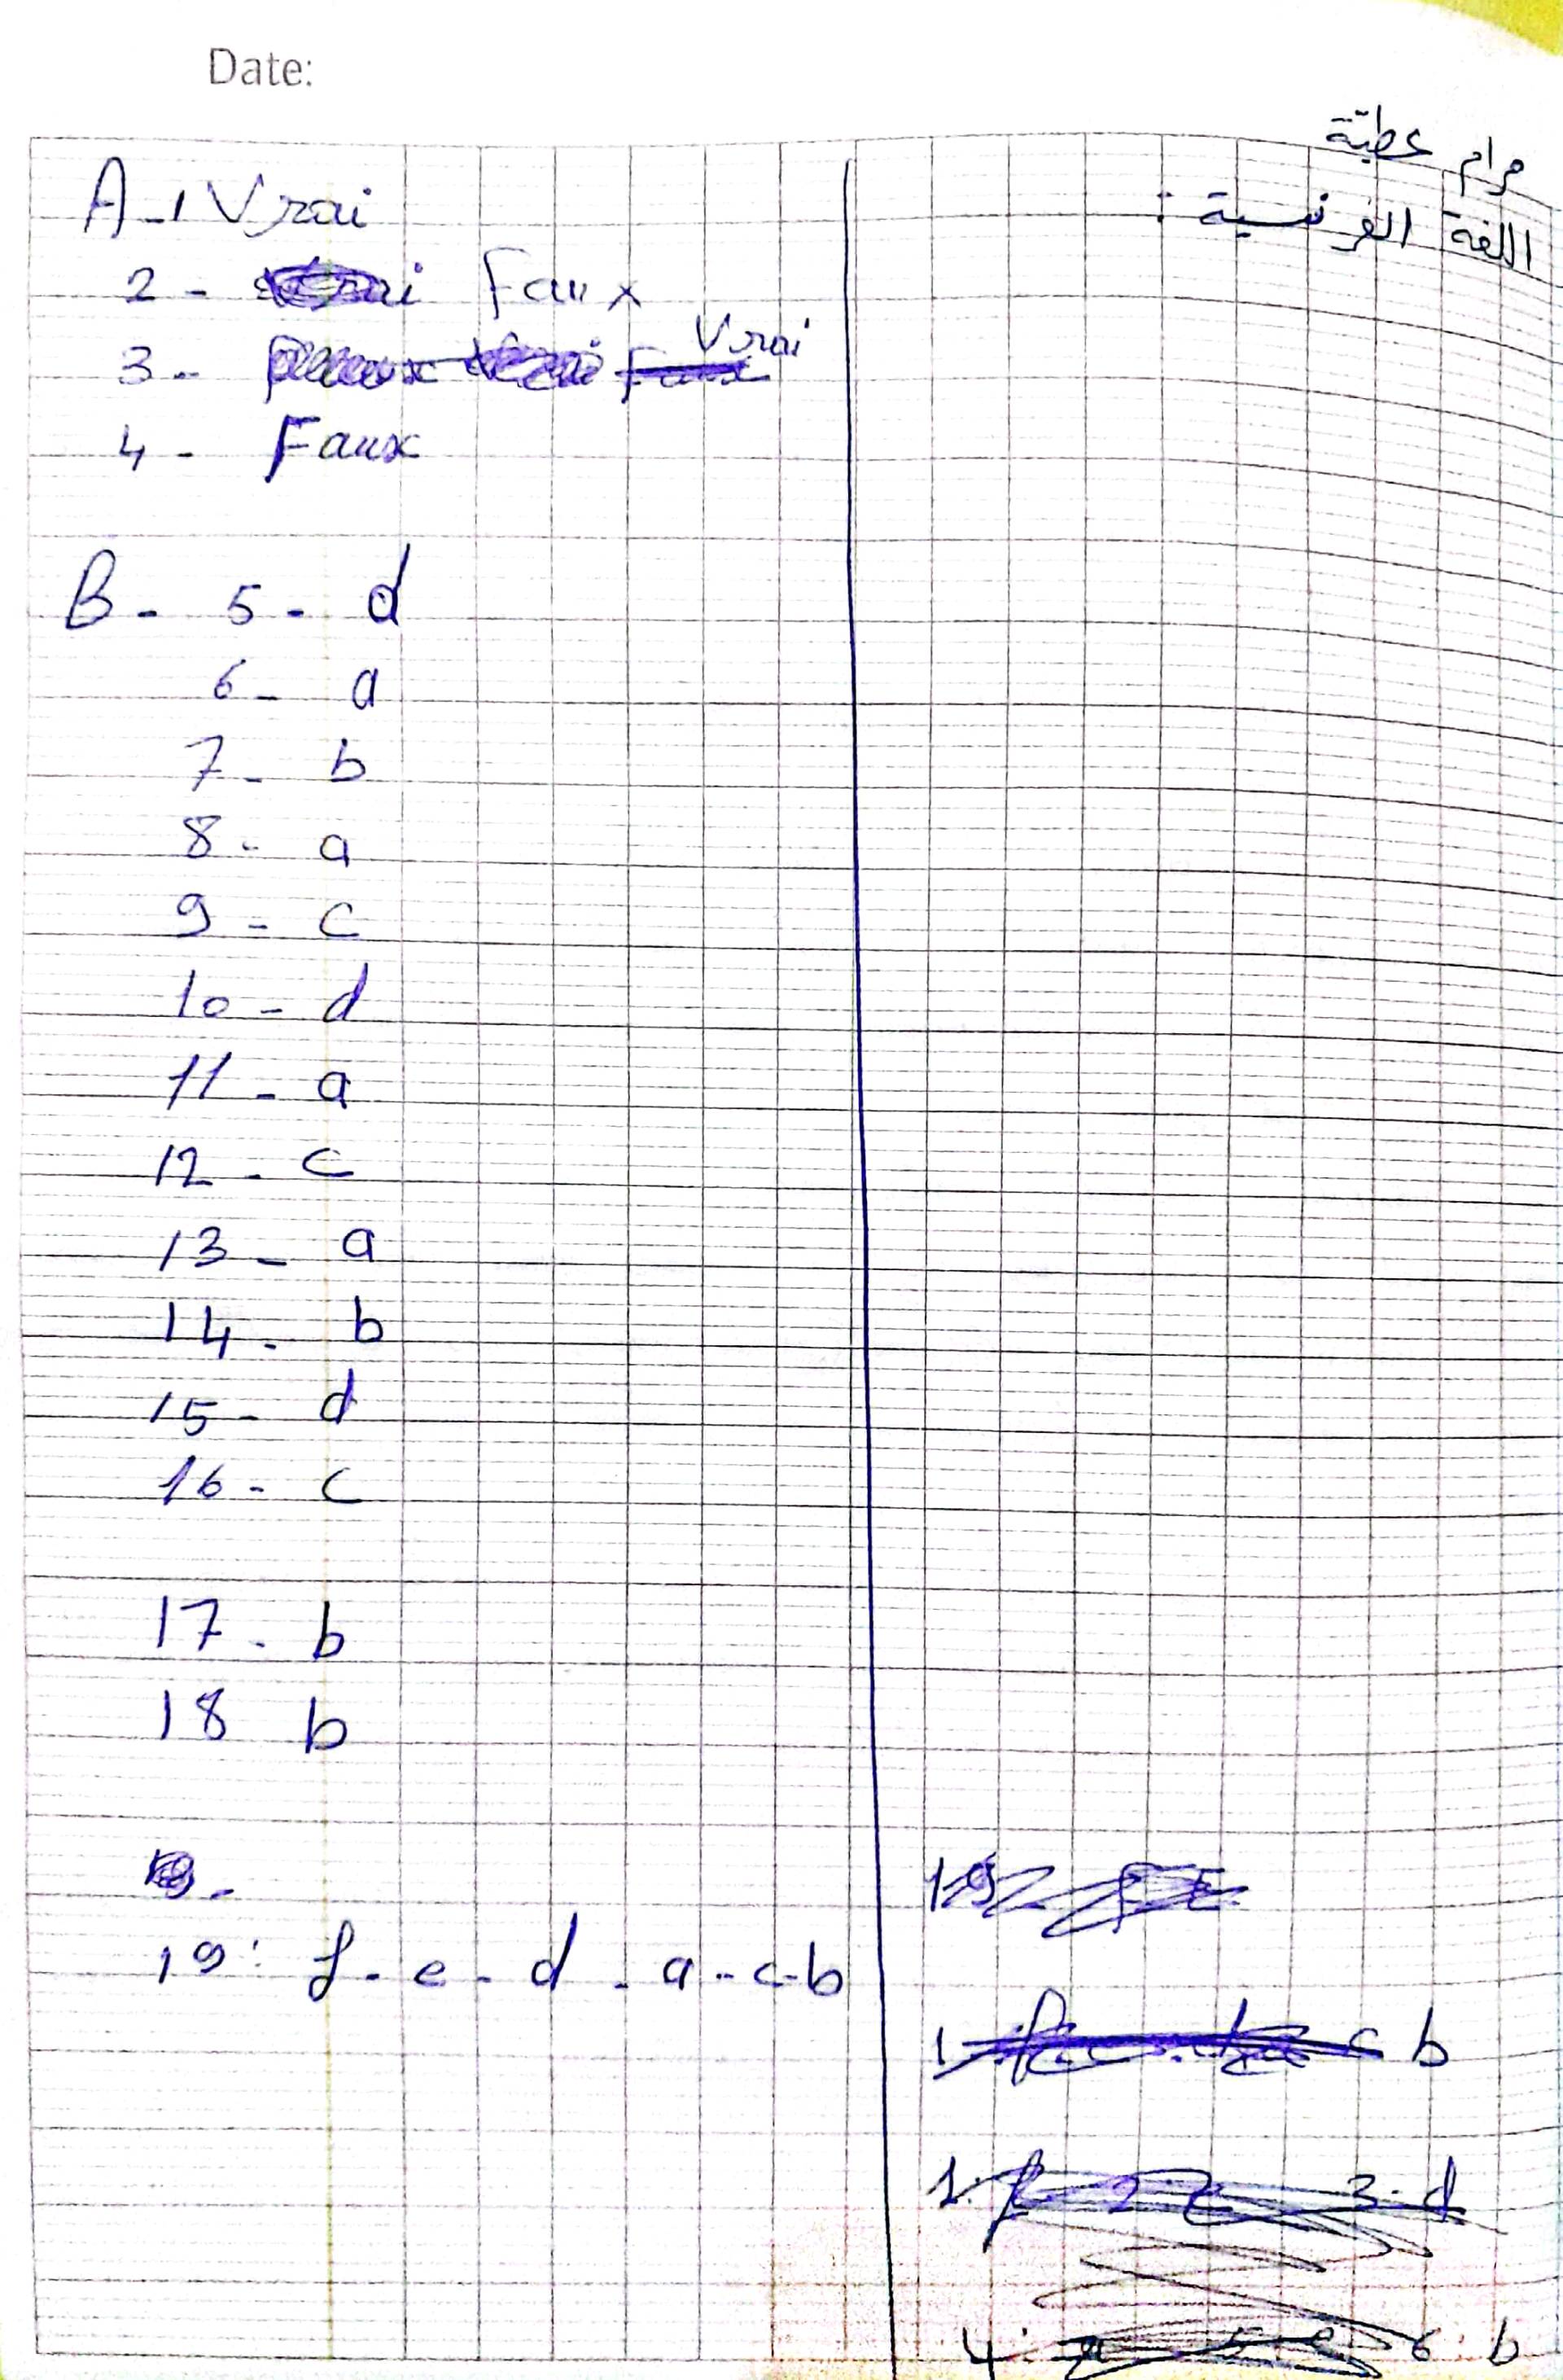 Date:
مرام عطية
اللغة الفرنسية :
A-1 Vrai
2 - Faux
3 - Vrai
4 - Faux
B - 5 - d
6 - a
7 - b
8 - a
9 - c
10 - d
11 - a
12 - c
13 - a
14 - b
15 - d
16 - c
17 - b
18 b
19: f - e - d - a - c - b
19
c b
3 - d
4: 6: b